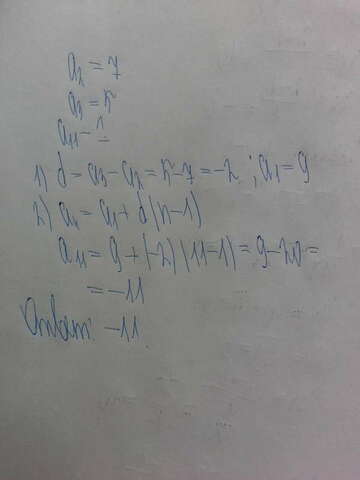 a₂ = 7
a₃ = 5
a₁₁ - ?
1) d = a₃ - a₂ = 5 - 7 = -2 ; a₁ = 9
2) aₙ = a₁ + d(n-1)
a₁₁ = 9 + (-2)(11-1) = 9 - 20 =
= -11
Ответ: -11.